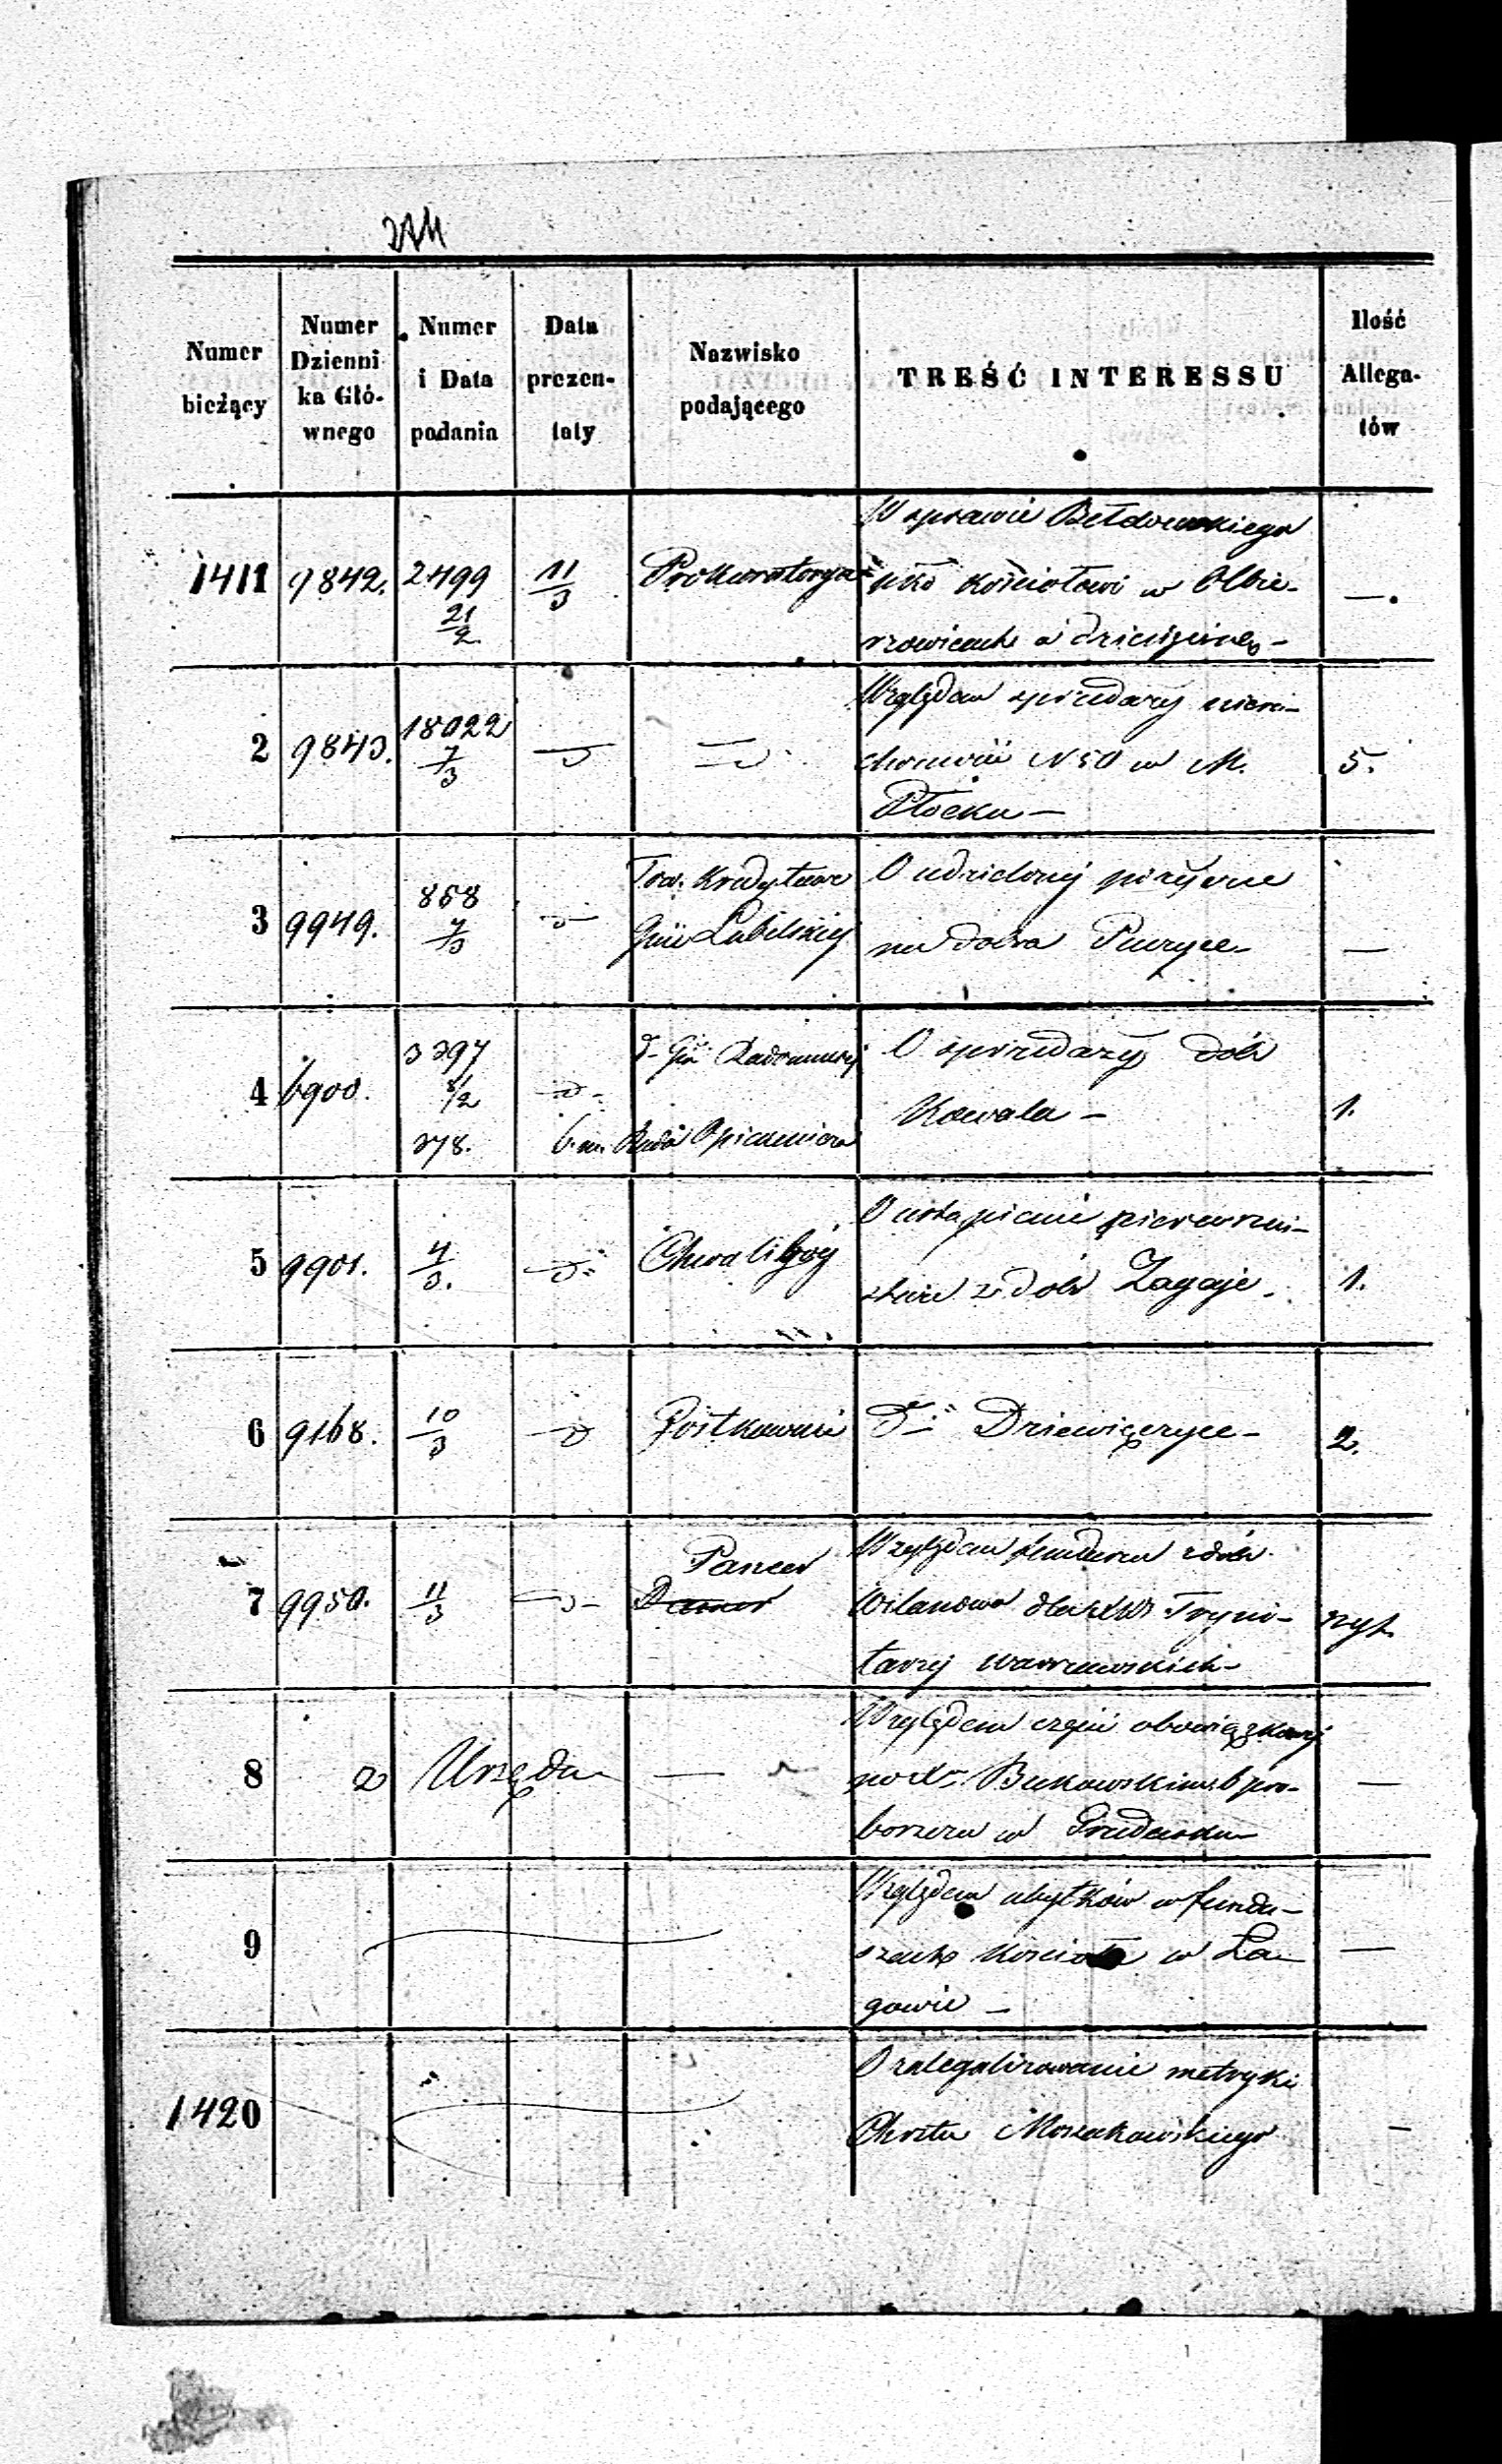 274
Numer bieżący
Numer Dzienni ka Głó- wnego
Numer i Data podania
Data prezen- taty
Nazwisko podającego
TREŚĆ INTERESSU
Ilość Allega- tów
1411 9842. 2499 21/2 11/3 Prokuratorya
W sprawie Bełdowskiego
pko kościołowi w Olbie-
rzowicach o dziesięcinę –
—.
2 9843. 18022 7/3
Względem sprzedaży nieru-
chomości N 50 w M.
Płocku –
5.
3 9949. 858 7/3
Tow. Kredytowe
Gui Lubelskiej
O udzieloney pożyczce
na dobra Puczyce –
—
4 6900. 3297 8/2 278.
d- Gu Radomskiej
b. m. Rada Opiekuńcza
O sprzedaży dóbr
Kowala –
1.
5 9901. 4/3. Chwalibóg
O ustąpienie pierwszeń-
stwa z dóbr Zagaje.
1.
6 9168. 10/3 Piotkowski
do Dziewięczyce –
2.
7 9950. 11/3 Pancer
Względem funduszu z dóbr
Wilanowa dla XX Tryni-
tarzy warszawskich –
zszyt.
8 z Urzędu —
Względem części obowiązkowej
po X. Bukowskim b. pro-
boszczu w
—
9
Względem ubytków w fundu-
szach kościoła w Ła-
gowie –
—
1420
O zalegalizowanie metryki
Chrztu Moszakowskiego
–